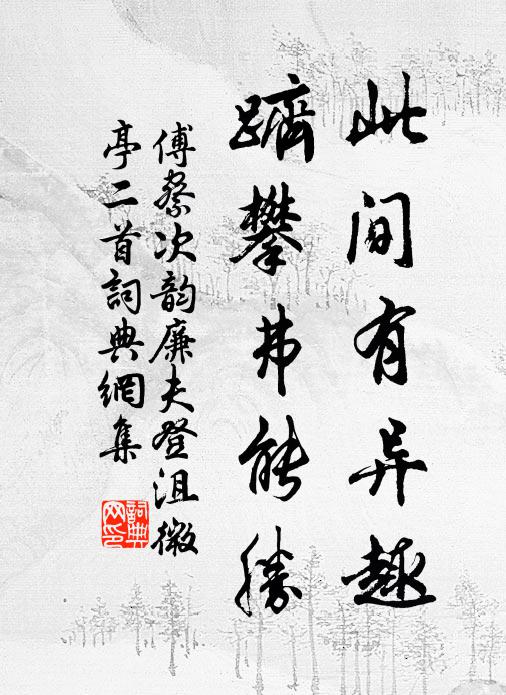 此间有异趣
跻攀弗能勝
傅察次韵廉夫登沮徽
亭二首詞典網集
詞典
网印